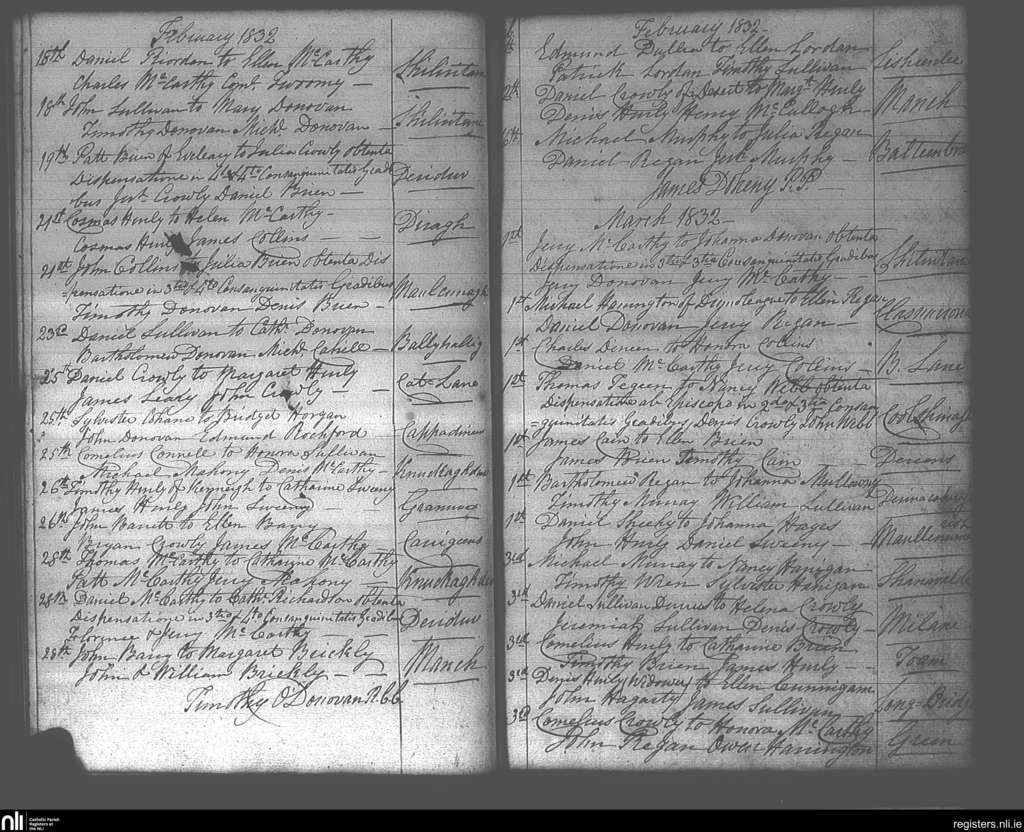 February 1832
18th Daniel Riordan to Ellen McCarthy
Charles McCarthy Corns. Twoomy - Shilintane
18th John Sullivan to Mary Donovan
Timothy Donovan Michl. Donovan - Shilintane
19th Patt Brien of Iveleary to Julia Crowly obtenta
Dispensatione in 4to & 4to Consanguinitatis Gradi
bus Jerh. Crowly Daniel Brien - Deridur
21st Cosmas Hurly to Helen McCarthy -
Cosmas Hurly James Collins - Diragh
21st John Collins to Julia Brien obtenta Dis
pensatione in 3tio & 4to Consanguinitatis Gradibus
Timothy Donovan Denis Brien - Maulcunagh
23rd Daniel Sullivan to Cathe. Donovan
Bartholomew Donovan Michl. Cahill - Ballyhallig
25th Daniel Crowly to Margaret Hurly
James Leary John Crowly - Cat-Lane
25th Sylvester Cohane to Bridget Horgan
John Donovan Edmund Rochford Cappadineen
25th Cornelius Connell to Honora Sullivan
Michael Mahony Denis McCarthy - Knuckaghduv
26th Timothy Hurly of Kenneigh to Catharine Sweeny
James Hurly John Sweeny - Granure
26th John Barrett to Ellen Barry
Bryan Crowly James McCarthy Carrigeens
28th Thomas McCarthy to Catharine McCarthy
Patt McCarthy Jerry Mahony - Knuckaghduv
28th Daniel McCarthy to Cathe. Richardson obtenta
Dispensatione in 3tio & 4to Consanguinitatis Gradibus
Florence & Jerry McCarthy - Deridur
28th John Barry to Margaret Brickly
John & William Brickly - Manch
Timothy O Donovan R.C.C
February 1832
Edmund to Ellen Lordan
Patrick Lordan Timothy Sullivan
Daniel Crowly of Desert to Margt. Hurly
Denis Hurly Henry McCullogh - Manch
Michael Murphy to Julia Regan
Daniel Regan Jerh. Murphy -
James Doheny P.P. -
March 1832 -
1st Jerry McCarthy to Johanna Donovan obtenta
Dispensatione in 3tio & 3tio Consanguinitatis Gradibus
Jerry Donovan Jerry McCarthy - Shilintane
1st Michael Harrington of to Ellen Regan
Daniel Donovan Jerry Regan -
1st Charles Deneen to Honora Collins
Daniel McCarthy Jerry Collins - B. Lane
1st Thomas Tegeen to Nancy Webb obtenta
Dispensatione ab Episcopo in 2do & 3tio Consan
guinitatis Gradibus Denis Crowly John Webb
1st James Cain to Ellen Brien
James Brien Timothy Cain -
1st Bartholomew Regan to Johanna Mullowny
Timothy Murray William Sullivan
1st Daniel Sheehy to Johanna Hayes
John Hurly Daniel Sweeny -
3rd Michael Murray to Nancy Hanigan
Timothy Wren Sylvester Hanigan -
3rd Daniel Sullivan to Helena Crowly
Jeremiah Sullivan Denis Crowly - Milane
3rd Cornelius Hurly to Catharine Brien
Timothy Brien James Hurly - Toam
3rd Denis Hurly Widower to Ellen Cunnigam
John Hagarty James Sullivan Long-Bridge
3rd Cornelius Crowly to Honora McCarthy
John Regan Owen Harrington Green
nli Catholic Parish Registers at the NLI
registers.nli.ie